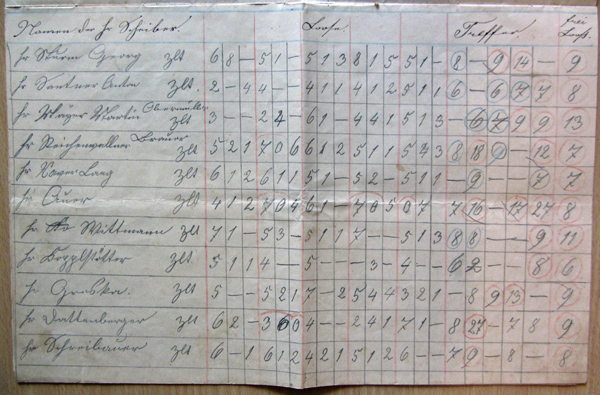 Namen der H. Schreiber. Loose. Treffer frei Looß.
Hr Sturm Georg Zlt 6 8 — 5 1 — 5 1 3 8 1 5 5 1 — 8 — 9 14 — 9
Hr Santner Anton Zlt. 2 — 4 4 — — 4 1 1 4 1 2 5 1 1 6 — 6 7 7 8
Hr Martin Obermüller Zlt 3 — — 2 4 — 6 1 — 4 4 1 5 1 3 — 6 7 9 9 13
Hr Reichenwallner Brauer Zlt 5 2 1 7 0 6 6 1 2 5 1 1 5 4 3 8 18 9 — 12 7
Hr Lang 6 1 2 6 1 1 5 1 — 5 2 — 5 1 1 — 9 — — 7 7
Hr Auer 4 1 2 7 0 4 6 1 — 7 0 5 0 7 — 7 16 — 17 27 8
Hr Wittmann Zlt 7 1 — 5 3 — 5 1 1 7 — — 5 1 3 8 8 — — 9 11
Hr Zlt 5 1 1 4 — 5 — — 3 — 4 — — 6 2 — — 8 6
Hr 5 — — 5 2 1 7 — 2 5 4 4 3 2 1 — 8 9 13 — 9
Hr Dattenberger Zlt 6 2 — 3 6 0 4 — — 2 4 1 7 1 — 8 27 — 7 8 9
Hr Schreibauer Zlt 6 — 1 6 1 2 4 2 1 5 1 2 6 — — 7 9 — 8 — 8